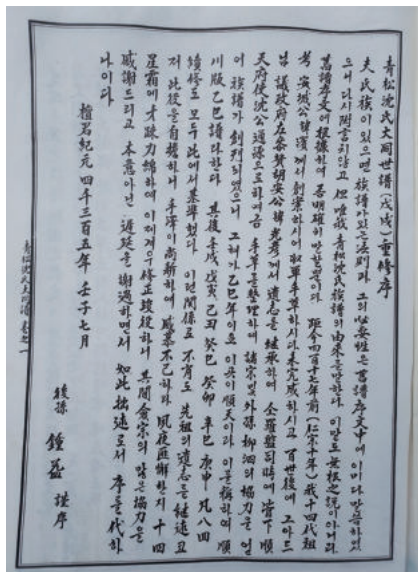 靑松沈氏大同世譜(戊戌)重修序
夫氏族이 있으면 族譜가 있는 法則과 그의 必要性은 舊譜序文中에 이미 다 말씀하였
으니 다시 附言치 않고 但 唯我 靑松沈氏族譜의 由來를 말한다 이 말도 無根之說이 아니라
舊譜序文에 根據하여 더 明確히 말할 뿐이다 距今四百十七年前(仁宗十年)我十四代祖
考 安城公 諱 濱께서 創案하시어 手草하시다 未完成하시고 百世後에 그 아드
님 議政府左參贊 胡安公 諱 光彦께서 遺志를 繼承하여 全羅監司時에 當下順
天府使 沈公 通源으로 하여금 手草를 整理하여 諸宗 및 外孫 柳泗의 協力을 얻
어 族譜가 創刊되었으니 그 해가 乙巳年이요 이곳이 順天이라 이를 稱하여 順
川版 乙巳譜라 한다 其後 壬戌 戊寅 己丑 癸巳 癸卯 辛巳 庚申 凡八回
續修도 모두 此에서 基準했다 이런 關係로 不肖도 先祖의 遺志를 繼述코
저 此役을 自擔하니 手澤이 尙新하여 感慕不已하다 夙夜匪懈한지 十四
星霜에 才疎力綿하여 이제겨우 修正竣役하니 其間 僉宗의 많은 協力을
感謝드리고 本意아닌 遲延을 謝過하면서 如此拙述로서 序를 代하
나이다
檀君紀元四千三百五年 壬子 七月
後孫 鍾益 謹序
靑松沈氏大同世譜 卷之一